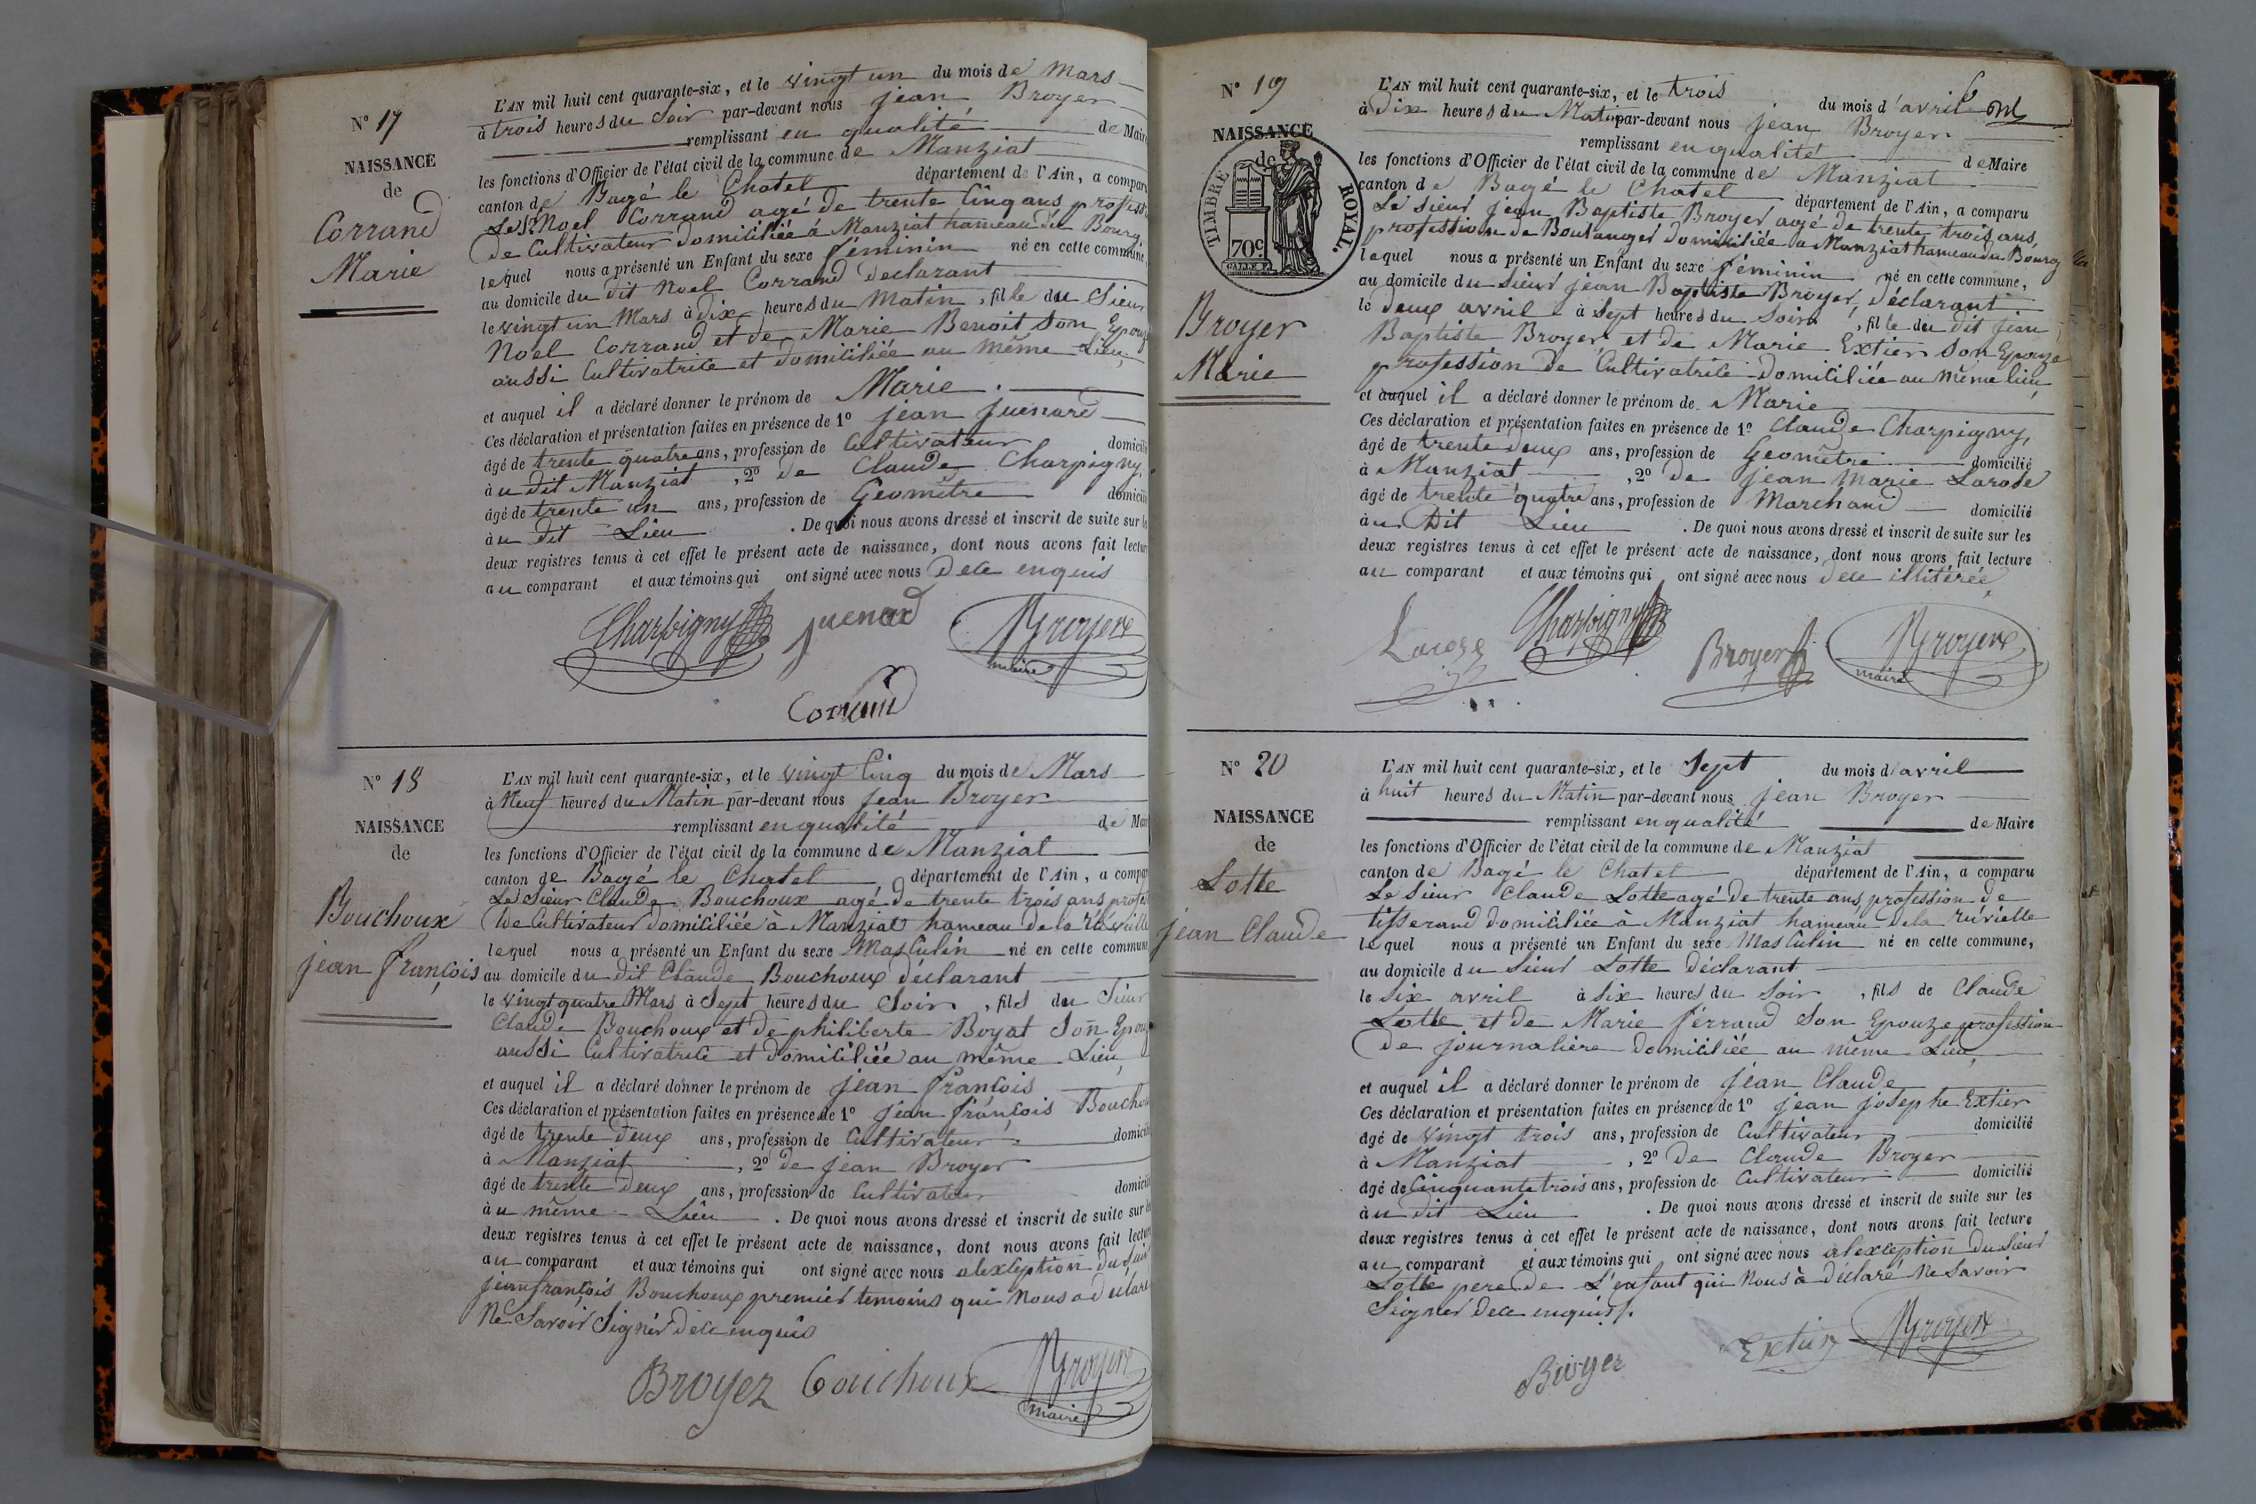 N° 17
NAISSANCE
de
Corrand
Marie
L'AN mil huit cent quarante-six, et le vingt un du mois de Mars
à trois heures du Soir par-devant nous jean Broyer
remplissant en qualité de Maire
les fonctions d'Officier de l'état civil de la commune de Manziat
canton de Bagé le Chatel département de l'Ain, a comparu
Le Sr Noel Corrand agé de trente Cinq ans, profess
de Cultivateur domiciliée à Manziat hameau du Bourg
lequel nous a présenté un Enfant du sexe féminin né en cette commune,
au domicile du dit Noel Corrand declarant
le vingt un Mars à dix heures du matin, fille du Sieur
Noel Corrand et de Marie Benoit son Epouze
aussi Cultivatrice et domiciliée au même Lieu,
et auquel il a déclaré donner le prénom de Marie.
Ces déclaration et présentation faites en présence de 1° jean juenard
âgé de trente quatre ans, profession de Cultivateur domicilié
à u dit Manziat, 2° de Claude Charpigny,
âgé de trente un ans, profession de Géomêtre domicilié
à u dit Lieu. De quoi nous avons dressé et inscrit de suite sur les
deux registres tenus à cet effet le présent acte de naissance, dont nous avons fait lecture
au comparant et aux témoins qui ont signé avec nous dece enquis
Charpigny juenard Broyer
maire
Corrand
N° 18
NAISSANCE
de
Bouchoux
jean françois
L'AN mil huit cent quarante-six, et le vingt Cinq du mois de Mars
à Neuf heures du Matin par-devant nous jean Broyer
remplissant en qualité de Maire
les fonctions d'Officier de l'état civil de la commune de Manziat
canton de Bagé le Chatel département de l'Ain, a comparu
Le Sieur Claude Bouchoux agé de trente trois ans, profess
de Cultivateur domiciliée à Manziat hameau de la
lequel nous a présenté un Enfant du sexe Masculin né en cette commune
au domicile du dit Claude Bouchoux déclarant
le vingt quatre Mars à Sept heures du Soir, fils du Sieur
Claude Bouchoux et de philiberte Boyat Son Epouze
aussi Cultivatrice et domiciliée au même Lieu,
et auquel il a déclaré donner le prénom de jean françois
Ces déclaration et présentation faites en présence de 1° jean françois Bouchoux
âgé de trente deux ans, profession de Cultivateur domicilié
à Manziat, 2° de jean Broyer
âgé de trente deux ans, profession de Cultivateur domicilié
à u même Lieu. De quoi nous avons dressé et inscrit de suite sur les
deux registres tenus à cet effet le présent acte de naissance, dont nous avons fait lecture
au comparant et aux témoins qui ont signé avec nous alexception du Sieur
jean françois Bouchoux premier temoins qui Nous a déclaré
Ne Savoir Signér dece enquis
Broyer Bouchoux Broyer
maire
N° 19
NAISSANCE
de
TIMBRE ROYAL.
70c
Broyer
Marie
L'AN mil huit cent quarante-six, et le trois du mois d'avril
à Dix heures du Matin par-devant nous jean Broyer
remplissant en qualité de Maire
les fonctions d'Officier de l'état civil de la commune de Manziat
canton de Bagé le Chatel département de l'Ain, a comparu
Le Sieur jean Baptiste Broyer agé de trente trois ans,
profession de Boulanger domiciliée a Manziat hameau du Bourg
lequel nous a présenté un Enfant du sexe féminin né en cette commune,
au domicile du Sieur jean Baptiste Broyer, déclarant
le deux avril à Sept heures du Soir, fille du dit jean
Baptiste Broyer et de Marie Extier Son Epouze
profession de Cultivatrice domiciliée au même lieu,
et auquel il a déclaré donner le prénom de Marie
Ces déclaration et présentation faites en présence de 1° Claude Charpigny,
âgé de trente deux ans, profession de Géomêtre domicilié
à Manziat, 2° de jean Marie Laroze
âgé de trente quatre ans, profession de Marchand domicilié
à u dit Lieu. De quoi nous avons dressé et inscrit de suite sur les
deux registres tenus à cet effet le présent acte de naissance, dont nous avons fait lecture
au comparant et aux témoins qui ont signé avec nous dece
Laroze Charpigny Broyer Broyer
maire
N° 20
NAISSANCE
de
Lotte
jean Claude
L'AN mil huit cent quarante-six, et le Sept du mois d'avril
à huit heures du Matin par-devant nous jean Broyer
remplissant en qualité de Maire
les fonctions d'Officier de l'état civil de la commune de Manziat
canton de Bagé le Chatel département de l'Ain, a comparu
Le Sieur Claude Lotte agé de trente ans, profession de
tisserand domiciliée à Manziat hameau dela
lequel nous a présenté un Enfant du sexe Masculin né en cette commune,
au domicile du Sieur Lotte déclarant
le Six avril à Six heures du Soir, fils de Claude
Lotte et de Marie férrand Son Epouze profession
de journalière domiciliée au même Lieu,
et auquel il a déclaré donner le prénom de jean Claude
Ces déclaration et présentation faites en présence de 1° jean josephe Extier
âgé de Vingt trois ans, profession de Cultivateur domicilié
à Manziat, 2° de Claude Broyer
âgé de Cinquante trois ans, profession de Cultivateur domicilié
à u dit Lieu. De quoi nous avons dressé et inscrit de suite sur les
deux registres tenus à cet effet le présent acte de naissance, dont nous avons fait lecture
au comparant et aux témoins qui ont signé avec nous alexception du Sieur
Lotte pere de L'enfant qui Nous à déclaré Ne Savoir
Signer dece enquis.
Broyer Extier Broyer